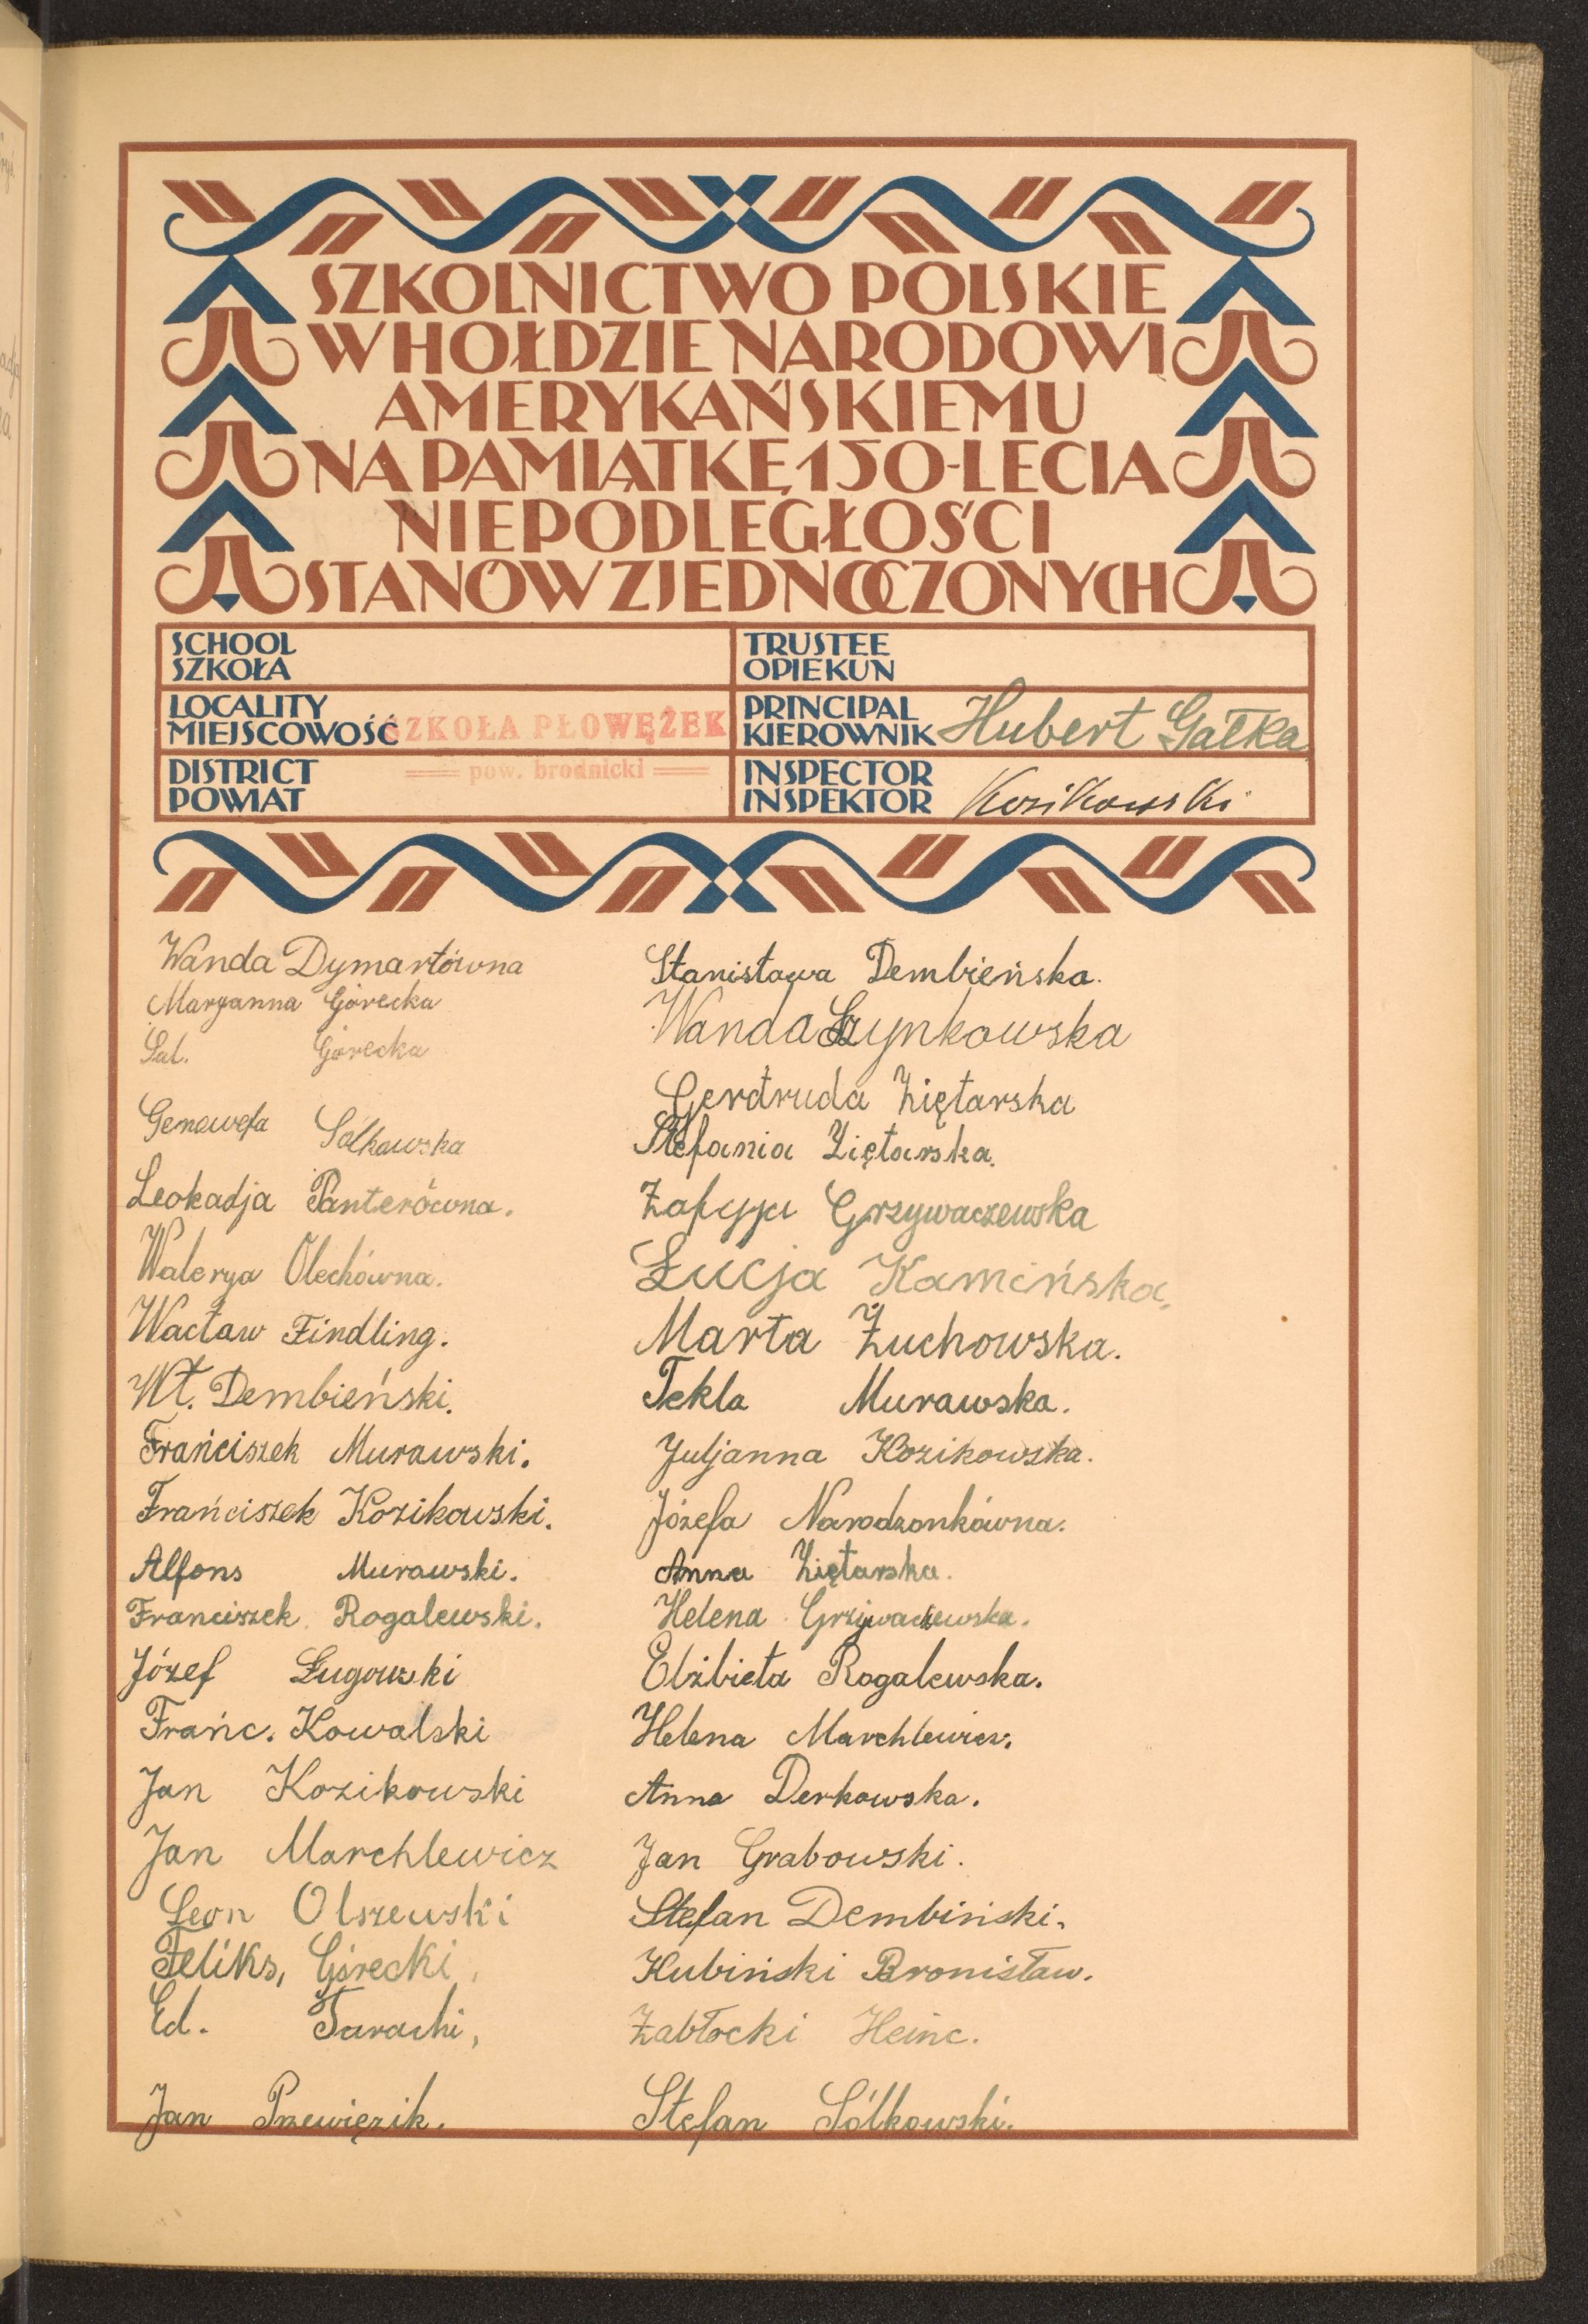 SZKOLNICTWO POLSKIE
W HOŁDZIE NARODOWI
AMERYKAŃSKIEMU
NA PAMIĄTKĘ 150-LECIA
NIEPODLEGŁOŚCI
STANÓW ZJEDNOCZONYCH
SCHOOL
SZKOŁA
TRUSTEE
OPIEKUN
LOCALITY
MIEJSCOWOŚĆ
SZKOŁA PŁOWĘŻEK
PRINCIPAL
KIEROWNIK
Hubert Gałka
DISTRICT
POWIAT
pow. brodnicki
INSPECTOR
INSPEKTOR
Kozikowski
Wanda Dymartówna
Maryanna Górecka
Sal. Górecka
Genowefa Solkowska
Leokadja Panterówna.
Walerya Olechówna.
Wacław Findling.
Wł. Dembieński.
Frańciszek Murawski.
Frańciszek Kozikowski.
Alfons Murawski.
Franciszek Rogalewski.
Józef Ługowski
Frańc. Kowalski
Jan Kozikowski
Jan Marchlewicz
Leon Olszewski
Feliks, Górecki,
Ed. Tarachi,
Jan Przewięzik.
Stanisława Dembieńska.
Wanda Szynkowska
Gerdruda Ziętarska
Stefania Ziętarska.
Zofyja Grzywaczewska
Łucja Kamińska,
Marta Żuchowska.
Tekla Murawska.
Juljanna Kozikowska.
Józefa Narodzonkówna.
Anna Ziętarska.
Helena Grzywaczewska.
Elżbieta Rogalewska.
Helena Marchlewicz.
Anna Derkowska.
Jan Grabowski.
Stefan Dembiński.
Kubiński Bronisław.
Zabłocki Heinc.
Stefan Sólkowski.